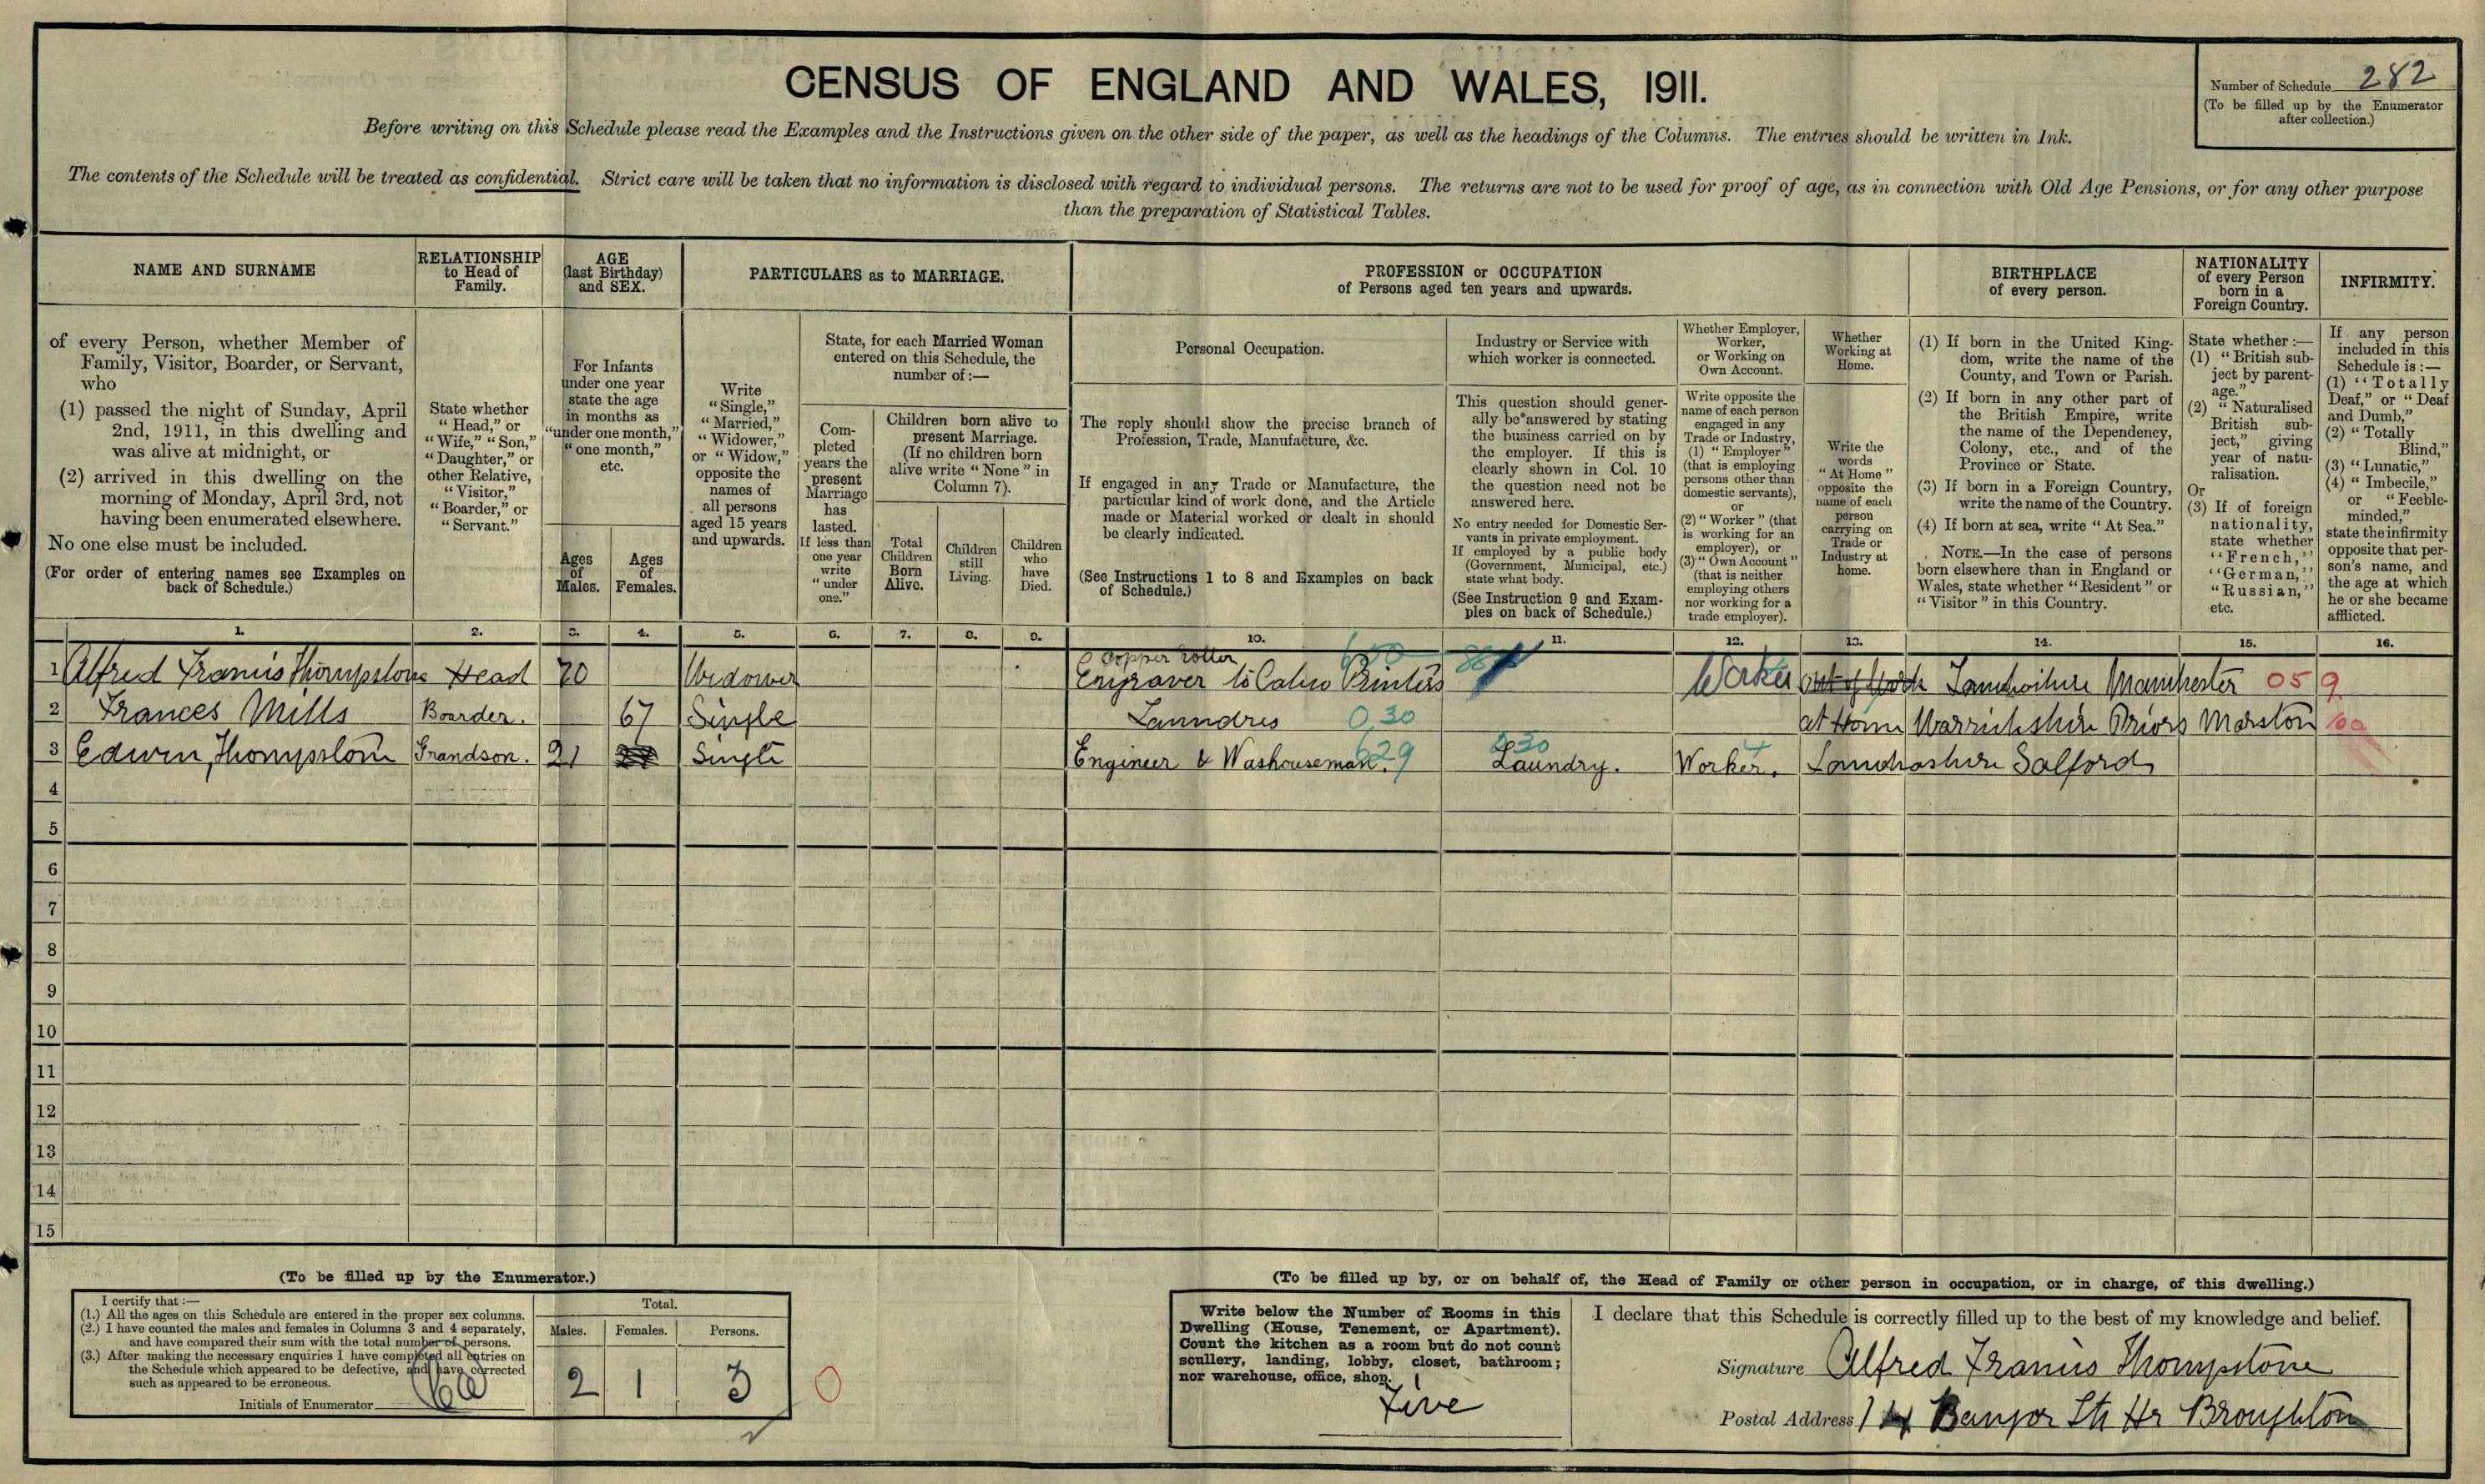 CENSUS OF ENGLAND AND WALES, 1911.
Number of Schedule 282
(To be filled up by the Enumerator
after collection.)
Before writing on this Schedule please read the Examples and the Instructions given on the other side of the paper, as well as the headings of the Columns. The entries should be written in Ink.
The contents of the Schedule will be treated as confidential. Strict care will be taken that no information is disclosed with regard to individual persons. The returns are not to be used for proof of age, as in connection with Old Age Pensions, or for any other purpose
than the preparation of Statistical Tables.
NAME AND SURNAME
of every Person, whether Member of
Family, Visitor, Boarder, or Servant,
who
(1) passed the night of Sunday, April
2nd, 1911, in this dwelling and
was alive at midnight, or
(2) arrived in this dwelling on the
morning of Monday, April 3rd, not
having been enumerated elsewhere.
No one else must be included.
(For order of entering names see Examples on
back of Schedule.)
RELATIONSHIP
to Head of
Family.
State whether
"Head," or
"Wife," "Son,"
"Daughter," or
other Relative,
"Visitor,"
"Boarder," or
"Servant."
AGE
(last Birthday)
and SEX.
For Infants
under one year
state the age
in months as
"under one month,"
"one month,"
etc.
Ages
of
Males.
Ages
of
Females.
PARTICULARS as to MARRIAGE.
Write
"Single,"
"Married,"
"Widower,"
or "Widow,"
opposite the
names of
all persons
aged 15 years
and upwards.
State, for each Married Woman
entered on this Schedule, the
number of:—
Com-
pleted
years the
present
Marriage
has
lasted.
If less than
one year
write
"under
one."
Children born alive to
present Marriage.
(If no children born
alive write "None" in
Column 7).
Total
Children
Born
Alive.
Children
still
Living.
Children
who
have
Died.
PROFESSION or OCCUPATION
of Persons aged ten years and upwards.
Personal Occupation.
The reply should show the precise branch of
Profession, Trade, Manufacture, &c.
If engaged in any Trade or Manufacture, the
particular kind of work done, and the Article
made or Material worked or dealt in should
be clearly indicated.
(See Instructions 1 to 8 and Examples on back
of Schedule.)
Industry or Service with
which worker is connected.
This question should gener-
ally be answered by stating
the business carried on by
the employer. If this is
clearly shown in Col. 10
the question need not be
answered here.
No entry needed for Domestic Ser-
vants in private employment.
If employed by a public body
(Government, Municipal, etc.)
state what body.
(See Instruction 9 and Exam-
ples on back of Schedule.)
Whether Employer,
Worker,
or Working on
Own Account.
Write opposite the
name of each person
engaged in any
Trade or Industry,
(1) "Employer"
(that is employing
persons other than
domestic servants),
or
(2) "Worker" (that
is working for an
employer), or
(3) "Own Account"
(that is neither
employing others
nor working for a
trade employer).
Whether
Working at
Home.
Write the
words
"At Home"
opposite the
name of each
person
carrying on
Trade or
Industry at
home.
BIRTHPLACE
of every person.
(1) If born in the United King-
dom, write the name of the
County, and Town or Parish.
(2) If born in any other part of
the British Empire, write
the name of the Dependency,
Colony, etc., and of the
Province or State.
(3) If born in a Foreign Country,
write the name of the Country.
(4) If born at sea, write "At Sea."
NOTE.—In the case of persons
born elsewhere than in England or
Wales, state whether "Resident" or
"Visitor" in this Country.
NATIONALITY
of every Person
born in a
Foreign Country.
State whether:—
(1) "British sub-
ject by parent-
age."
(2) "Naturalised
British sub-
ject," giving
year of natu-
ralisation.
Or
(3) If of foreign
nationality,
state whether
"French,"
"German,"
"Russian,"
etc.
INFIRMITY.
If any person
included in this
Schedule is:—
(1) "Totally
Deaf," or "Deaf
and Dumb,"
(2) "Totally
Blind,"
(3) "Lunatic,"
(4) "Imbecile,"
or "Feeble-
minded,"
state the infirmity
opposite that per-
son's name, and
the age at which
he or she became
afflicted.
1. 2. 3. 4. 5. 6. 7. 8. 9. 10. 11. 12. 13. 14. 15. 16.
Copper roller
1 Alfred Francis Thompstone Head 70 Widower Engraver to Calico Printers Worker out of Work Lancashire Manchester 059
2 Frances Mills Boarder. 67 Single Laundress 030 at Home Warrickshire Priors Marston
3 Edwin Thompstone Grandson. 21 Single Engineer & Washouseman. 629 Laundry. 030 Worker. Lancashire Salford
4
5
6
7
8
9
10
11
12
13
14
15
(To be filled up by the Enumerator.)
I certify that:—
(1.) All the ages on this Schedule are entered in the proper sex columns.
(2.) I have counted the males and females in Columns 3 and 4 separately,
and have compared their sum with the total number of persons.
(3.) After making the necessary enquiries I have completed all entries on
the Schedule which appeared to be defective, and have corrected
such as appeared to be erroneous.
Initials of Enumerator
Total.
Males. Females. Persons.
2 1 3
(To be filled up by, or on behalf of, the Head of Family or other person in occupation, or in charge, of this dwelling.)
Write below the Number of Rooms in this
Dwelling (House, Tenement, or Apartment).
Count the kitchen as a room but do not count
scullery, landing, lobby, closet, bathroom;
nor warehouse, office, shop.
Five
I declare that this Schedule is correctly filled up to the best of my knowledge and belief.
Signature Alfred Francis Thompstone
Postal Address 14 Bangor St Hr Broughton